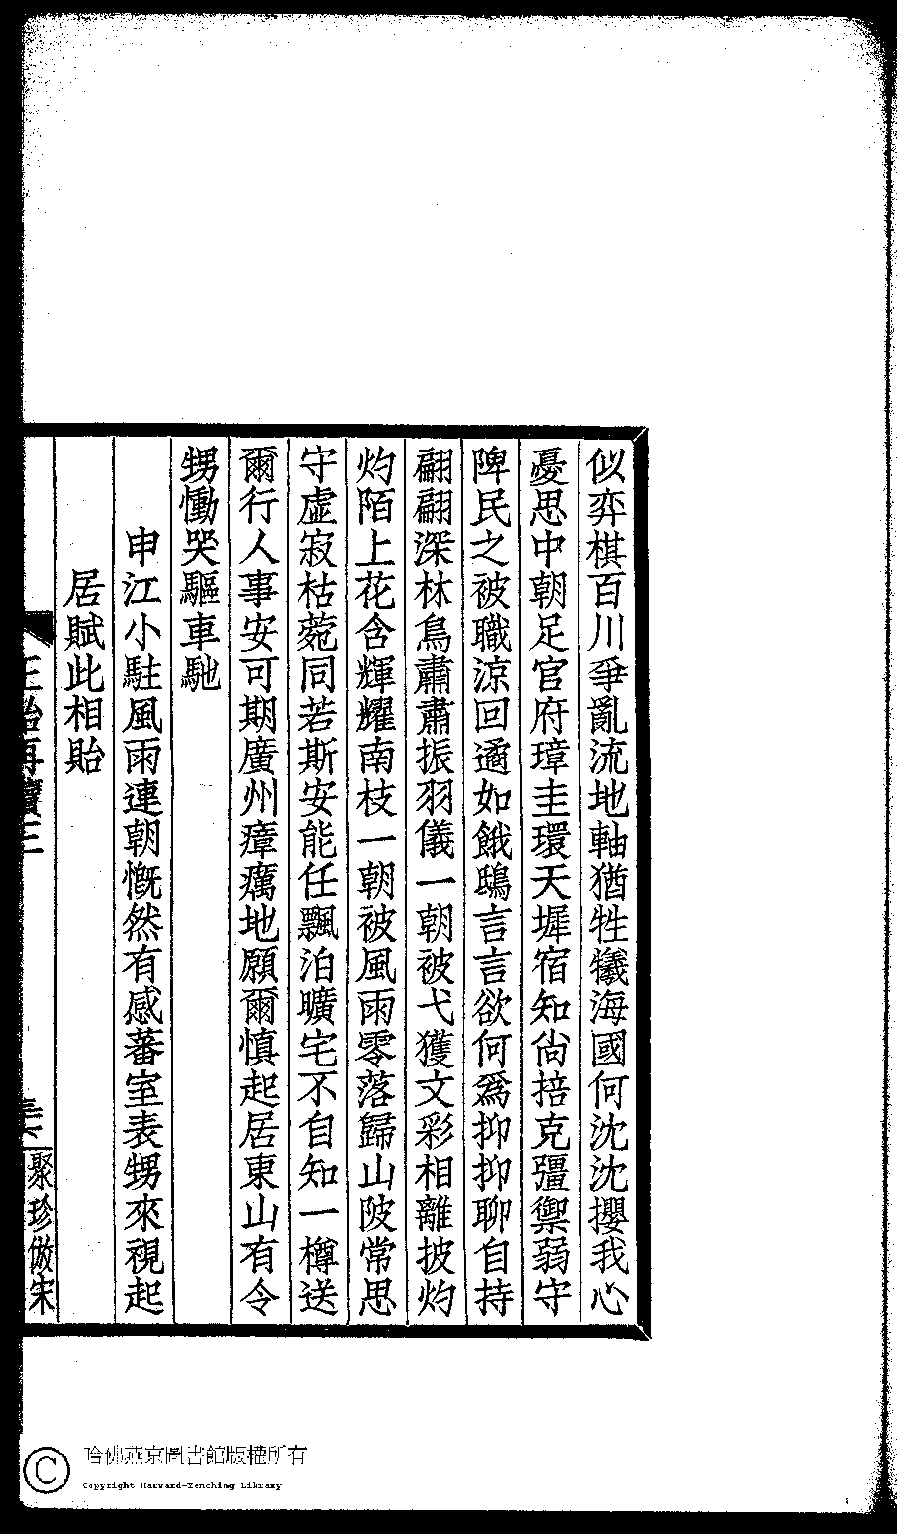 似弈棋百川爭亂流地軸猶牲犧海國何沈沈攖我心
憂思中朝足官府璋圭環天墀宿知尙掊克彊禦弱守
陴民之被職涼回遹如餓鴟言言欲何爲抑抑聊自持
翩翩深林鳥肅肅振羽儀一朝被弋獲文彩相離披灼
灼陌上花含輝耀南枝一朝被風雨零落歸山陂常思
守虛寂枯菀同若斯安能任飄泊曠宅不自知一樽送
爾行人事安可期廣州瘴癘地願爾慎起居東山有令
甥慟哭驅車馳
申江小駐風雨連朝慨然有感蕃室表甥來視起
居賦此相貽
聚珍倣宋
哈佛燕京圖書館版權所有
Copyright Harvard-Yenching Library